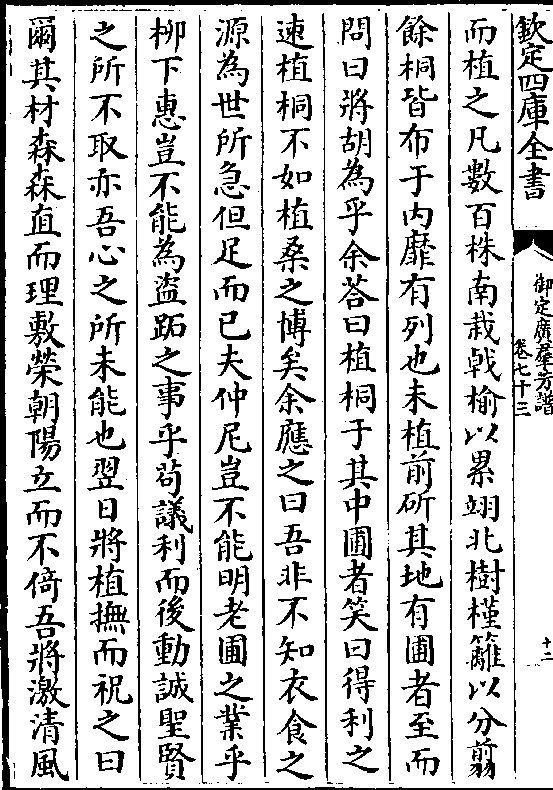 欽定四庫全書
御定廣羣芳譜
卷七十三
十二
而植之凡數百株南栽㦸榆以累翊北樹槿籬以分翦
餘桐皆布于内靡有列也未植前斫其地有圃者至而
問曰將胡為乎余荅曰植桐于其中圃者笑曰得利之
速植桐不如植桑之博矣余應之曰吾非不知衣食之
源為世所急但足而已夫仲尼豈不能明老圃之業乎
柳下惠豈不能為盗跖之事乎苟議利而後動誠聖賢
之所不取亦吾心之所未能也翌日將植撫而祝之曰
爾其材森森直而理敷榮朝陽立而不倚吾將激清風